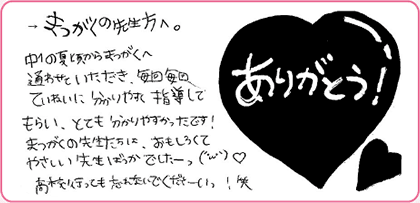 → まつがくの先生方へ。
中1の夏頃からまつがくへ
通わせていただき、毎回毎回
ていねいに分かりやすく指導して
もらい、とても分かりやすかったです!
まつがくの先生たちは、おもしろくて
やさしい先生ばっかでしたーっ(´ω`)♡
高校いっても忘れないでくださーいっ!笑
ありがとう!